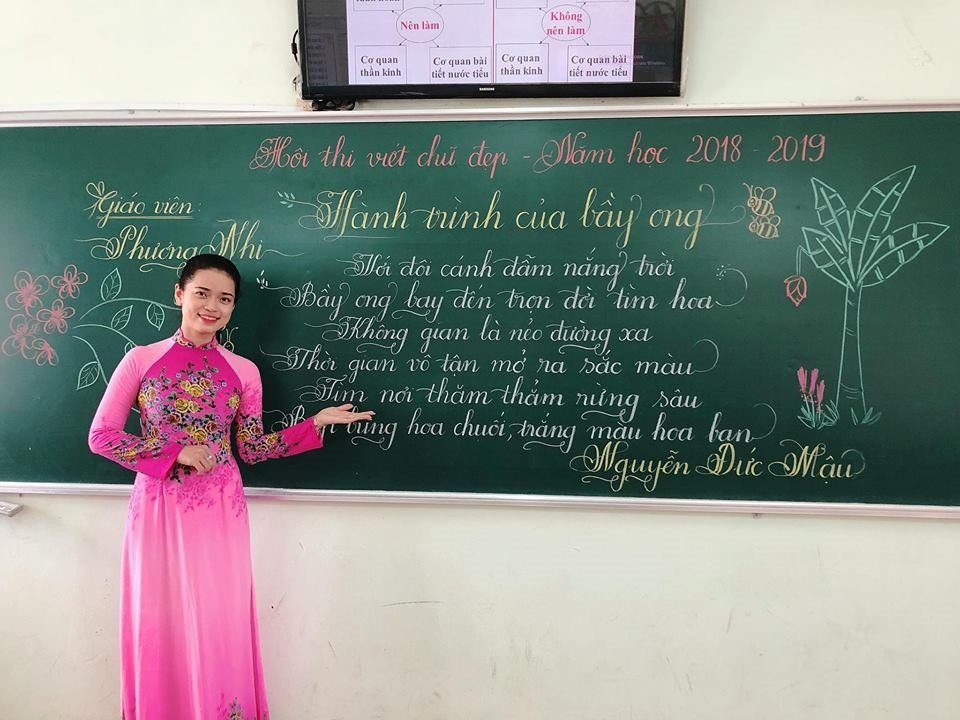 Nên làm
Không nên làm
Cơ quan thần kinh
Cơ quan bài tiết nước tiểu
Cơ quan thần kinh
Cơ quan bài tiết nước tiểu
SAMSUNG
Hội thi viết chữ đẹp - Năm học 2018 - 2019
Giáo viên:
Phương Nhi
Hành trình của bầy ong
Với đôi cánh đẫm nắng trời
Bầy ong bay đến trọn đời tìm hoa
Không gian là nẻo đường xa
Thời gian vô tận mở ra sắc màu
Tìm nơi thăm thẳm rừng sâu
bùng hoa chuối, trắng màu hoa ban
Nguyễn Đức Mậu